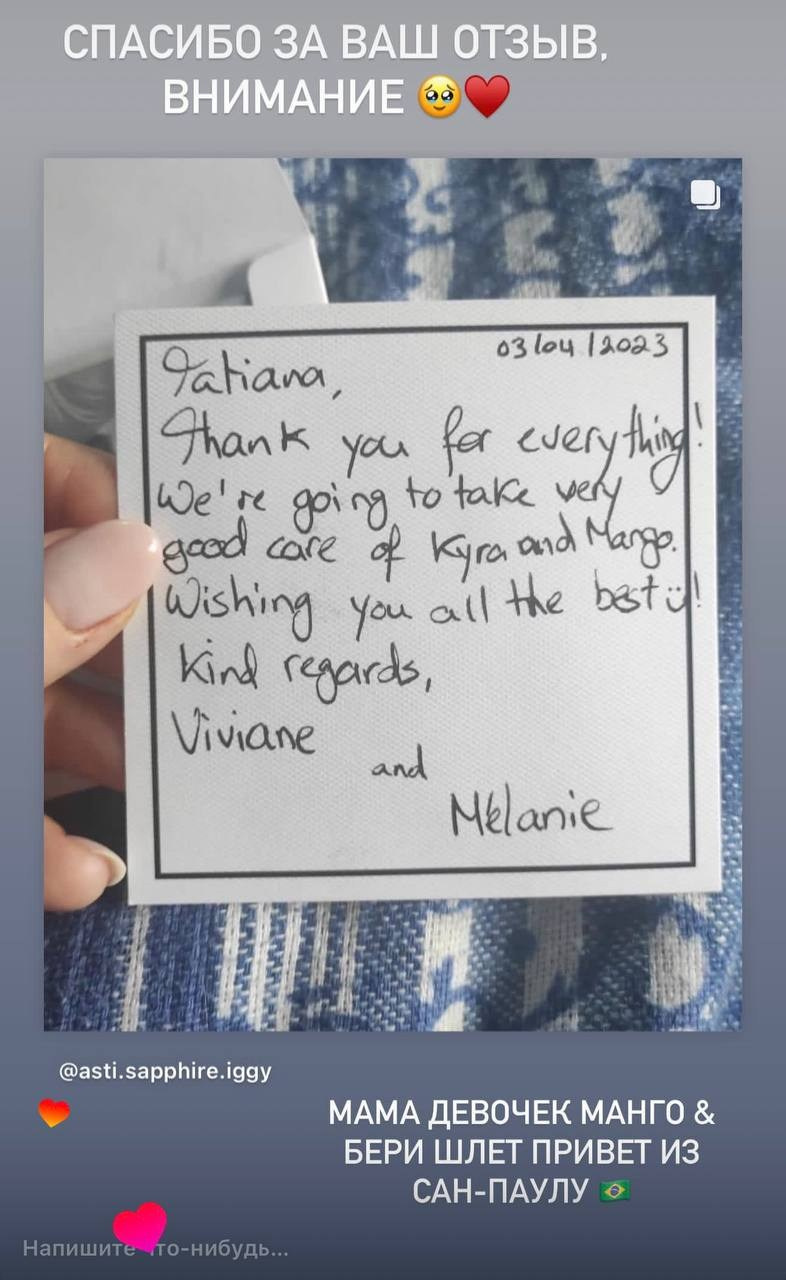 СПАСИБО ЗА ВАШ ОТЗЫВ,
ВНИМАНИЕ 🥹♥️
03/04/2023
Tatiana,
Thank you for everything!
We're going to take very
good care of Kyra and Mango.
Wishing you all the best ü!
Kind regards,
Viviane
and
Mélanie
@asti.sapphire.iggy
МАМА ДЕВОЧЕК МАНГО &
БЕРИ ШЛЕТ ПРИВЕТ ИЗ
САН-ПАУЛУ 🇧🇷
Напишите что-нибудь...